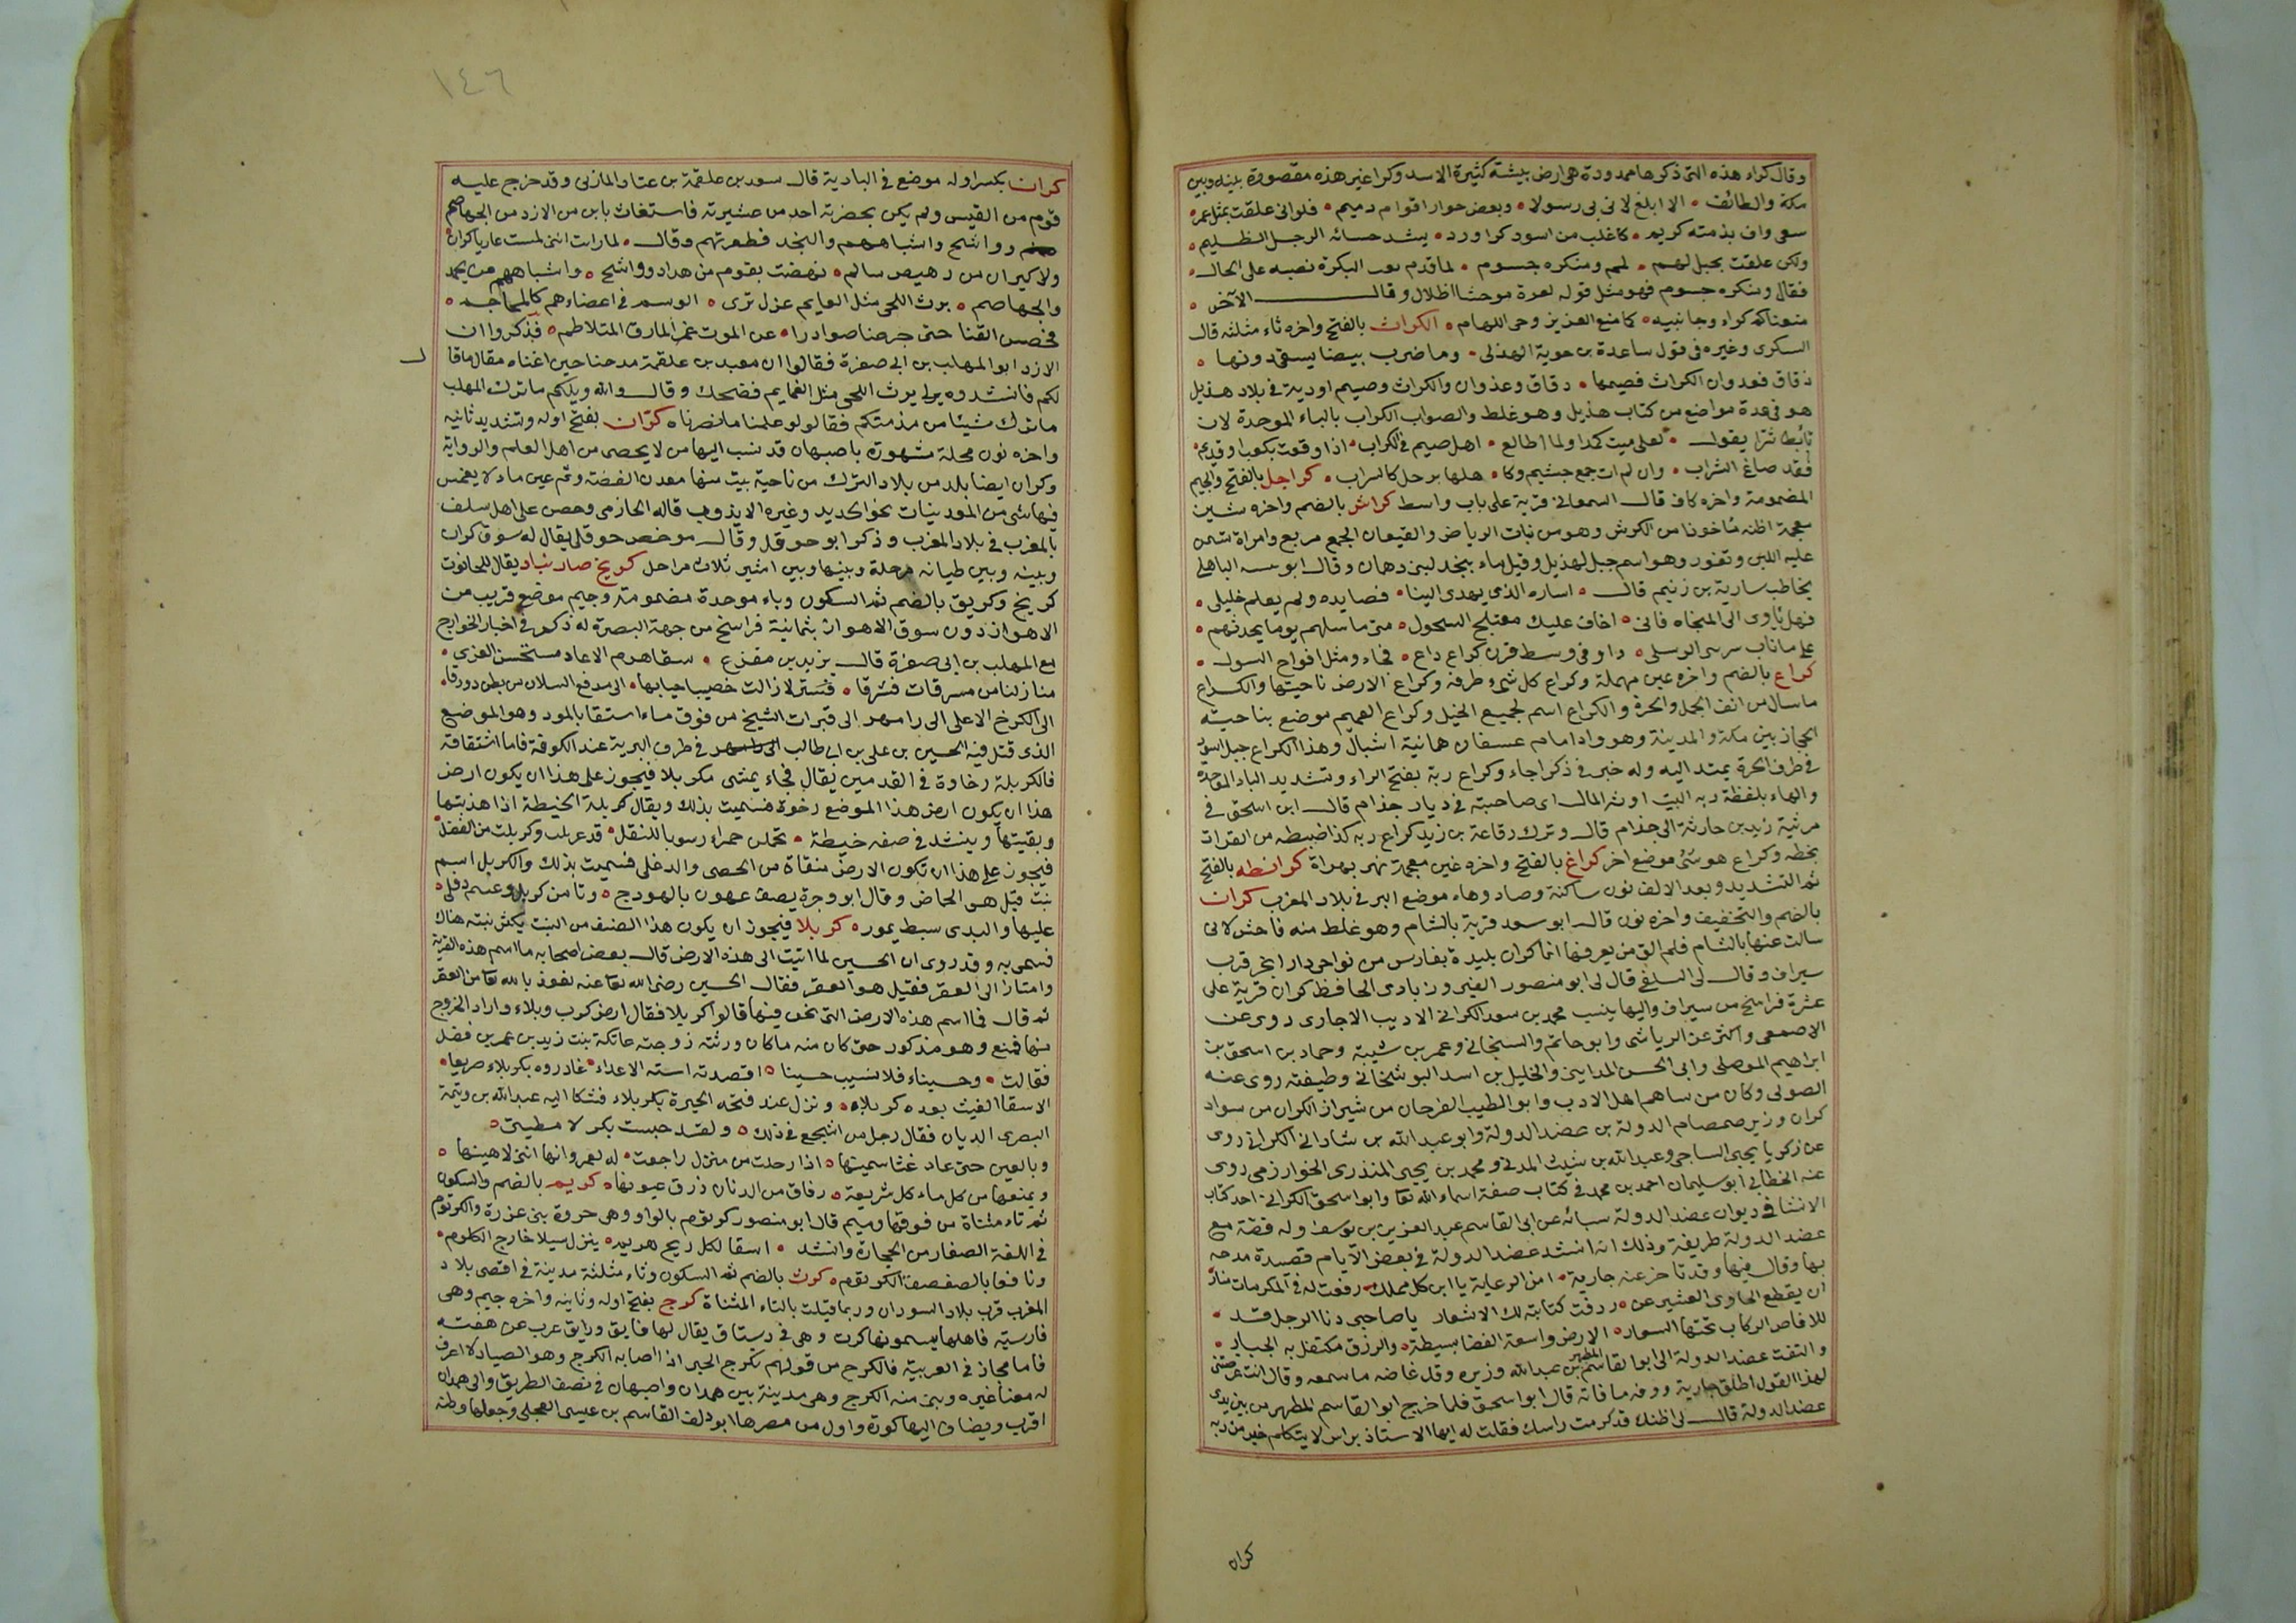 وقال كراء هذه التى ذكرها ممدودة هى ارض بيشة كثيرة الاسد وكرا غير هذه مقصورة بينه وبين
مكة والطائف • الا ابلغ لانى بى رسولا • وبعض حوار اقوام دميم • فلوانى علقت بمثل عمر •
سعى واف بذمته كريم • كاغلب من اسود كرا ورد • يشد حسائه الرجل الظليم •
ولكن علقت بحبل لهم • لمم ومنكره جسوم • لما قدم نعت النكرة نصبه على الحال •
فقال ومنكره جسوم فهو مثل قوله لعزة موحشا اطلال وقال الآخر •
منعناكم كراء وجانبيه • كما منع العزيز وحى اللهام • الكراث بالفتح واخره ثاء مثلثه قال
السكرى وغيره فى قول ساعدة بن جوية الهذلى • وما ضرب بيضا يسقى دونها •
دقاق فعدوان الكراث فصيمها • دقاق وعدوان والكراث وصيم اودية فى بلاد هذيل
هو فى عدة مواضع من كتاب هذيل وهو غلط والصواب الكراب بالباء الموحدة لان
تابط شرا يقول • لعلى ميت كمدا ولما اطالع • اهل صيم فالكراب • اذا وقعت بكعب او قريم •
فقد صاغ الشراب • وان لم ات جمع جشيم وكا • هلها برحل كالسراب • كراجل بالفتح والجيم
المضمومة واخره كاف قال السمعانى قرية على باب واسط كراش بالضم واخره شين
معجمة اظنه ماخوذا من الكرش وهو من نبات الرياض والقيعان الجمع مربع وامراة تسمن
عليه اللبن وتغزر وهو اسم جبل لهذيل وقيل ماء بنجد لبنى دهمان وقال ابو الباهلى
يخاطب سارية بن زنيم قال • اساره الذى يهدى الينا • قصايده ولم يعلم خليلى •
فهل تاوى الى المنحاه فانى • اخاف عليك معتلج السحول • متى ما سلهم يوما يحدثهم •
على ماناب • داو فى وسط قرن كراع داع • فجاء ومثل افواج السول •
كراع بالضم واخره عين مهملة وكراع كل شىء طرفه وكراع الارض ناحيتها والكراع
ما سال من انف الجبل والحرة والكراع اسم لجميع الخيل وكراع الغميم موضع بناحية
الحجاز بين مكة والمدينة وهو واد امام عسفان بثمانية اميال وهذا الكراع جبل اسود
فى طرف الحرة يمتد اليه وله خبر فى ذكر اجاء وكراع ربة بفتح الراء وتشديد الباء الموحدة
والهاء بلفظة ربه البيت اوربة المال اى صاحبته فى ديار جذام قال ابن اسحق فى
مرثية زيد بن حارثة الى جذام قال وترك رفاعة بن زيد كراع ربه كذا ضبطه من الفرات
بخطه وكراع هوشى موضع اخر كراغ بالفتح واخره غين معجمة نهر بهراة كرانطه بالفتح
ثم التشديد وبعد الالف نون ساكنة وصاد وهاء موضع البر فى بلاد المغرب كران
بالضم والتخفيف واخره نون قال ابو سعد قرية بالشام وهو غلط منه فاحش لانى
سالت عنها بالشام فلم الق من يعرفها انما كران بليدة بفارس من نواحى دار ابجر قرب
سيراف وقال لى السلفى قال لى ابو منصور الفيروزبادى الحافظ كران قرية على
عشرة فراسخ من سيراف واليها ينسب محمد بن سعد الكرانى الاديب الاخبارى روى عن
الاصمعى واكثر عن الرياشى وابو حاتم والسنجانى وعمر بن شيبة وحماد بن اسحق بن
ابراهيم الموصلى وابى الحسن المداينى والخليل بن اسد البوشخانى وطبقته روى عنه
الصولى وكان من ساهم اهل الادب وابو الطيب الفرخان من شيراز الكران من سواد
كران وزير صمصام الدولة بن عضد الدولة وابو عبد الله بن شاذانى الكرانى روى
عن زكريا يحيى الساجى وعبد الله بن شبيث المدنى ومحمد بن يحيى المنذرى الخوارزمى روى
عنه الخطابى ابو سليمان احمد بن محمد فى كتاب صفة اسماء الله تعا وابو اسحق الكرانى احد كتاب
الانشا فى ديوان عضد الدولة سبائه عن ابى القاسم عبد العزيز بن يوسف وله قصة مع
عضد الدولة طريفة وذلك انه انشد عضد الدولة فى بعض الايام قصيدة مدحه
بها وقال فيها وقد تاخر عنه جاريه • امن الرعاية يا ابن كل مملك • رفعت له فى المكرمات منار
ان يقطع الجارى العشير عن • رزقت كتابته لك الاشعار يا صاحبى دنا الرحل فقد •
للاقاص الركاب تحتها السمار • الارض واسعة الفضا بسيطة • والرزق مكتفل به الجبار •
والتفت عضد الدولة الى ابو القاسم المطهر بن عبد الله وزيره وقد غاضه ما سمعه وقال انت عرضتنى
لهذا القول اطلق جاريه ووفه ما فاته قال ابو اسحق فلما خرج ابو القاسم المطهر من بين يدى
عضد الدولة قال لى اظنك قد كرمت راسك فقلت له ايها الاستاذ براس لا يتكلم خير من ربه
كران
١٤٦
كران بكسر اوله موضع فى البادية قال سعد بن علقمة بن عتاد المازنى وقد خرج عليه
قوم من القيس ولم يكن بحضرته احد من عشيرته فاستغاث باس من الازد من الجهاضم
وواشح واشباههم والنجد فطعرتهم وقال • لما رات انى لمست عاريا كران
ولا كيران من رهيص سالم • نهضت بقوم من هداد وواشح • واشباههم من يحمد
والجهاضم • بوث اللحى مثل الغمايم عزل ترى • الوسم فى اعضاءهم كالمحاجم •
فخصن القنا حتى جرضنا صوادرا • عن الموت غمر المارق المتلاطم • فذكروا ان
الازد ابو المهلب بن ابى صفرة فقالوا ان معبد بن علقمة مدحنا حين اغثناه مقال ما قا ل
لكم فانشدوه بولى بوث اللحى مثل الغمايم فضحك وقال والله ويلكم ماترك المهلب
ماترك شيئا من مذمتكم فقالو لو علمنا ما نصرناه كران بفتح اوله وتشديد ثانيه
واخره نون محلة مشهورة باصبهان قد نسب اليها من لا يحصى من اهل العلم والرواية
وكران ايضا بلد من بلاد الترك من ناحية بيت منها معدن الفضة وثم عين ماء لا يغمس
فيها شى من المعدنيات نحو الحديد وغيره الا يذوب قاله الحازمى وحصن على اهل سلف
بالمغرب فى بلاد المغرب وذكر ابو حوقل وقال موضع حوقل يقال له سوق كران
وبينه وبين طيانه مرحلة وبينها وبين اشير ثلاث مراحل كربج صار نباد يقال للحانوت
كربج وكربق بالضم ثم السكون وباء موحدة مضمومة وجيم موضع قريب من
الاهواز دون سوق الاهواز بثمانية فراسخ من جهة البصرة له ذكر فى اخبار الخوارج
مع المهلب بن ابى صفرة قال يزيد بن مفزع • سقا هزم الاعاد مستحسن العزى •
منازلنا من مسرقان فشرقا • فتستر لا زالت خصيبا جنابها • الى مدفع السلان من بطن دورقا •
الى الكربج الاعلى الى رامهر الى قبرات الشيخ من فوق ماء استقا بالمود وهو الموضع
الذى قتل فيه الحسين بن على بن ابى طالب فى طرف البرية عند الكوفة فاما اشتقاقه
فالكربلة رخاوة فى القدمين يقال فجاء يمشى مكربلا فيجوز على هذا ان يكون ارض
هذا ان يكون ارض هذا الموضع رخوة فسميت بذلك ويقال كربلة الحنيطة اذا هذبتها
ونقيتها وينشد فى صفه خيطة • تحملن حمراء رسوبا للنقل • قد غربلت وكربلت من القصل •
فيجوز على هذا ان تكون الارض منقاة من الحصى والدغلى فسميت بذلك والكربل اسم
نبت قيل هو الحماض وقال ابو وجزة يصف عهون بالهودج • وثامن كربل وعميم دفلى •
عليها والندى سبط يمور • كربلا فيجوز ان يكون هذا الصنف من النبت يكثر نبته هناك
فسمى به وقد روى ان الحسين لما اتيت الى هذه الارض قال بعض اصحابه ما اسم هذه القرية
وامتاز الى العقر فقيل هو العقر فقال الحسين رضى الله تعا عنه نعوذ بالله تعا من العقر
ثم قال فما اسم هذه الارض التى نحن فيها قالوا كربلا فقال ارض كرب وبلاء واراد الخروج
منها فمنع وهو مذكور حتى كان منه ما كان ورثته زوجته عاتكة بنت زيد بن عمر بن فضل
فقالت • وحسيناء فلا نسيب حسينا • اقصدته استه الاعداء • غادروه بكربلاء صريعا •
لاسقا الغيث بعده كربلاء • ونزل عند فتحه الحيرة بكربلاء فشكا اليه عبد الله بن وتيمة
البصرى الدبان فقال رجل من اشجع فى ذلك • ولقد حبست بكربلا مطيتى •
وبالعين حتى عاد غثا سمينها • اذا رحلت من منزل راجعت • له لعمر وانها اننى لا هينها •
ويمنعها من كل ماء كل شريعة • رفاق من الدنان زرق عيونها • كربم بالضم والسكون
ثم تاء مثناة من فوقها وميم قال ابو منصور كرتوم بالواو وهى حروة بنى عذرة والكرتوم
فى اللغة الصفار من الحجارة وانشد • اسقا لكل ربح هريم • ينزل سيلا خارج الكلوم •
ونافعا بالصفصف الكرتوم • كرث بالضم ثم السكون وثاء مثلثة مدينة فى اقصى بلاد
المغرب قرب بلاد السودان وربما قيلت بالتاء المثناة كرج بفتح اوله وثانيه واخره جيم وهى
فارسية فاهلها يسمونها كرت وهى فى رستاق يقال لها فايق ورايق عرب عن هفته
فاما مجاز فى العربية فالكرج من قولهم تكرج الخبز اذا اصابه الكرج وهو الصياد لا اعرف
له معنا غيره وبنى منه الكرج وهى مدينة بين همدان واصبهان فى نصف الطريق والى همدان
اقرب ويضاف اليها كورة واول من مصرها ابو دلف القاسم بن عيسى العجلى وجعلها وطنه